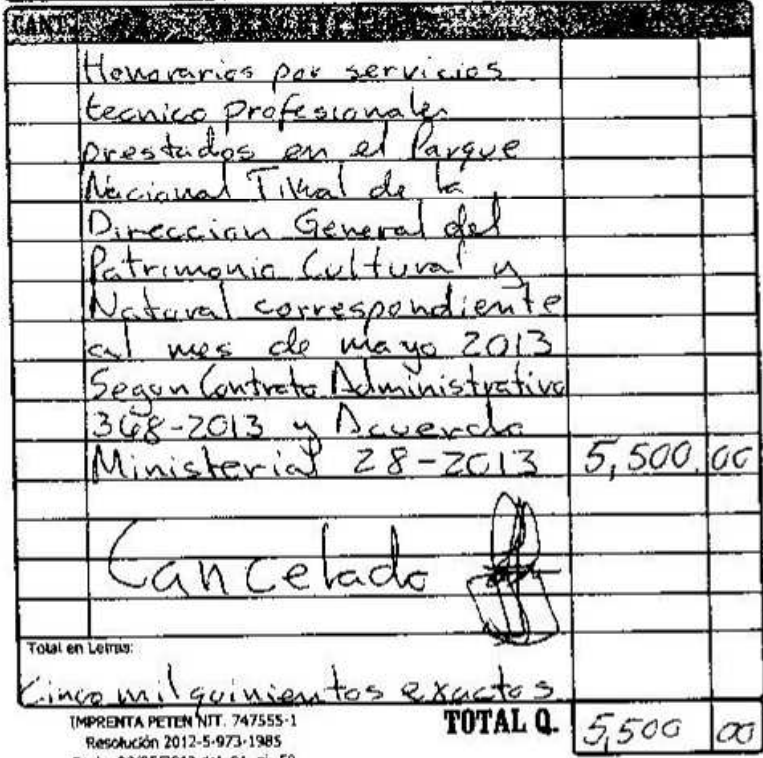 CANT.
Honorarios por servicios
tecnico profesionales
prestados en el Parque
Nacional Tikal de la
Direccion General del
Patrimonio Cultural y
Natural correspondiente
al mes de mayo 2013
Segun Contrato Administrativo
368-2013 y Acuerdo
Ministerial 28-2013 5,500.00
Cancelado
Total en Letras:
Cinco mil quinientos exactos
IMPRENTA PETEN NIT. 747555-1
TOTAL Q. 5,500 00
Resolución 2012-5-973-1985